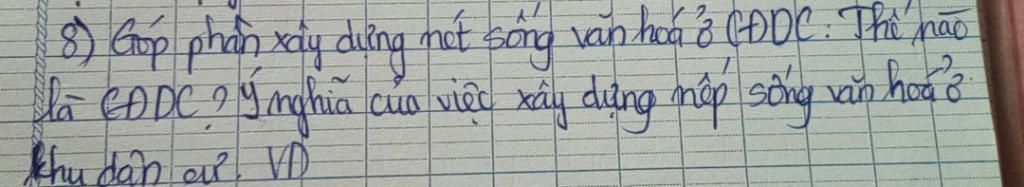 8) Góp phần xây dựng nét sống văn hoá ở CĐDC. Thế nào
là CĐDC? Ý nghĩa của việc xây dựng nếp sống văn hoá ở
khu dân cư. VD